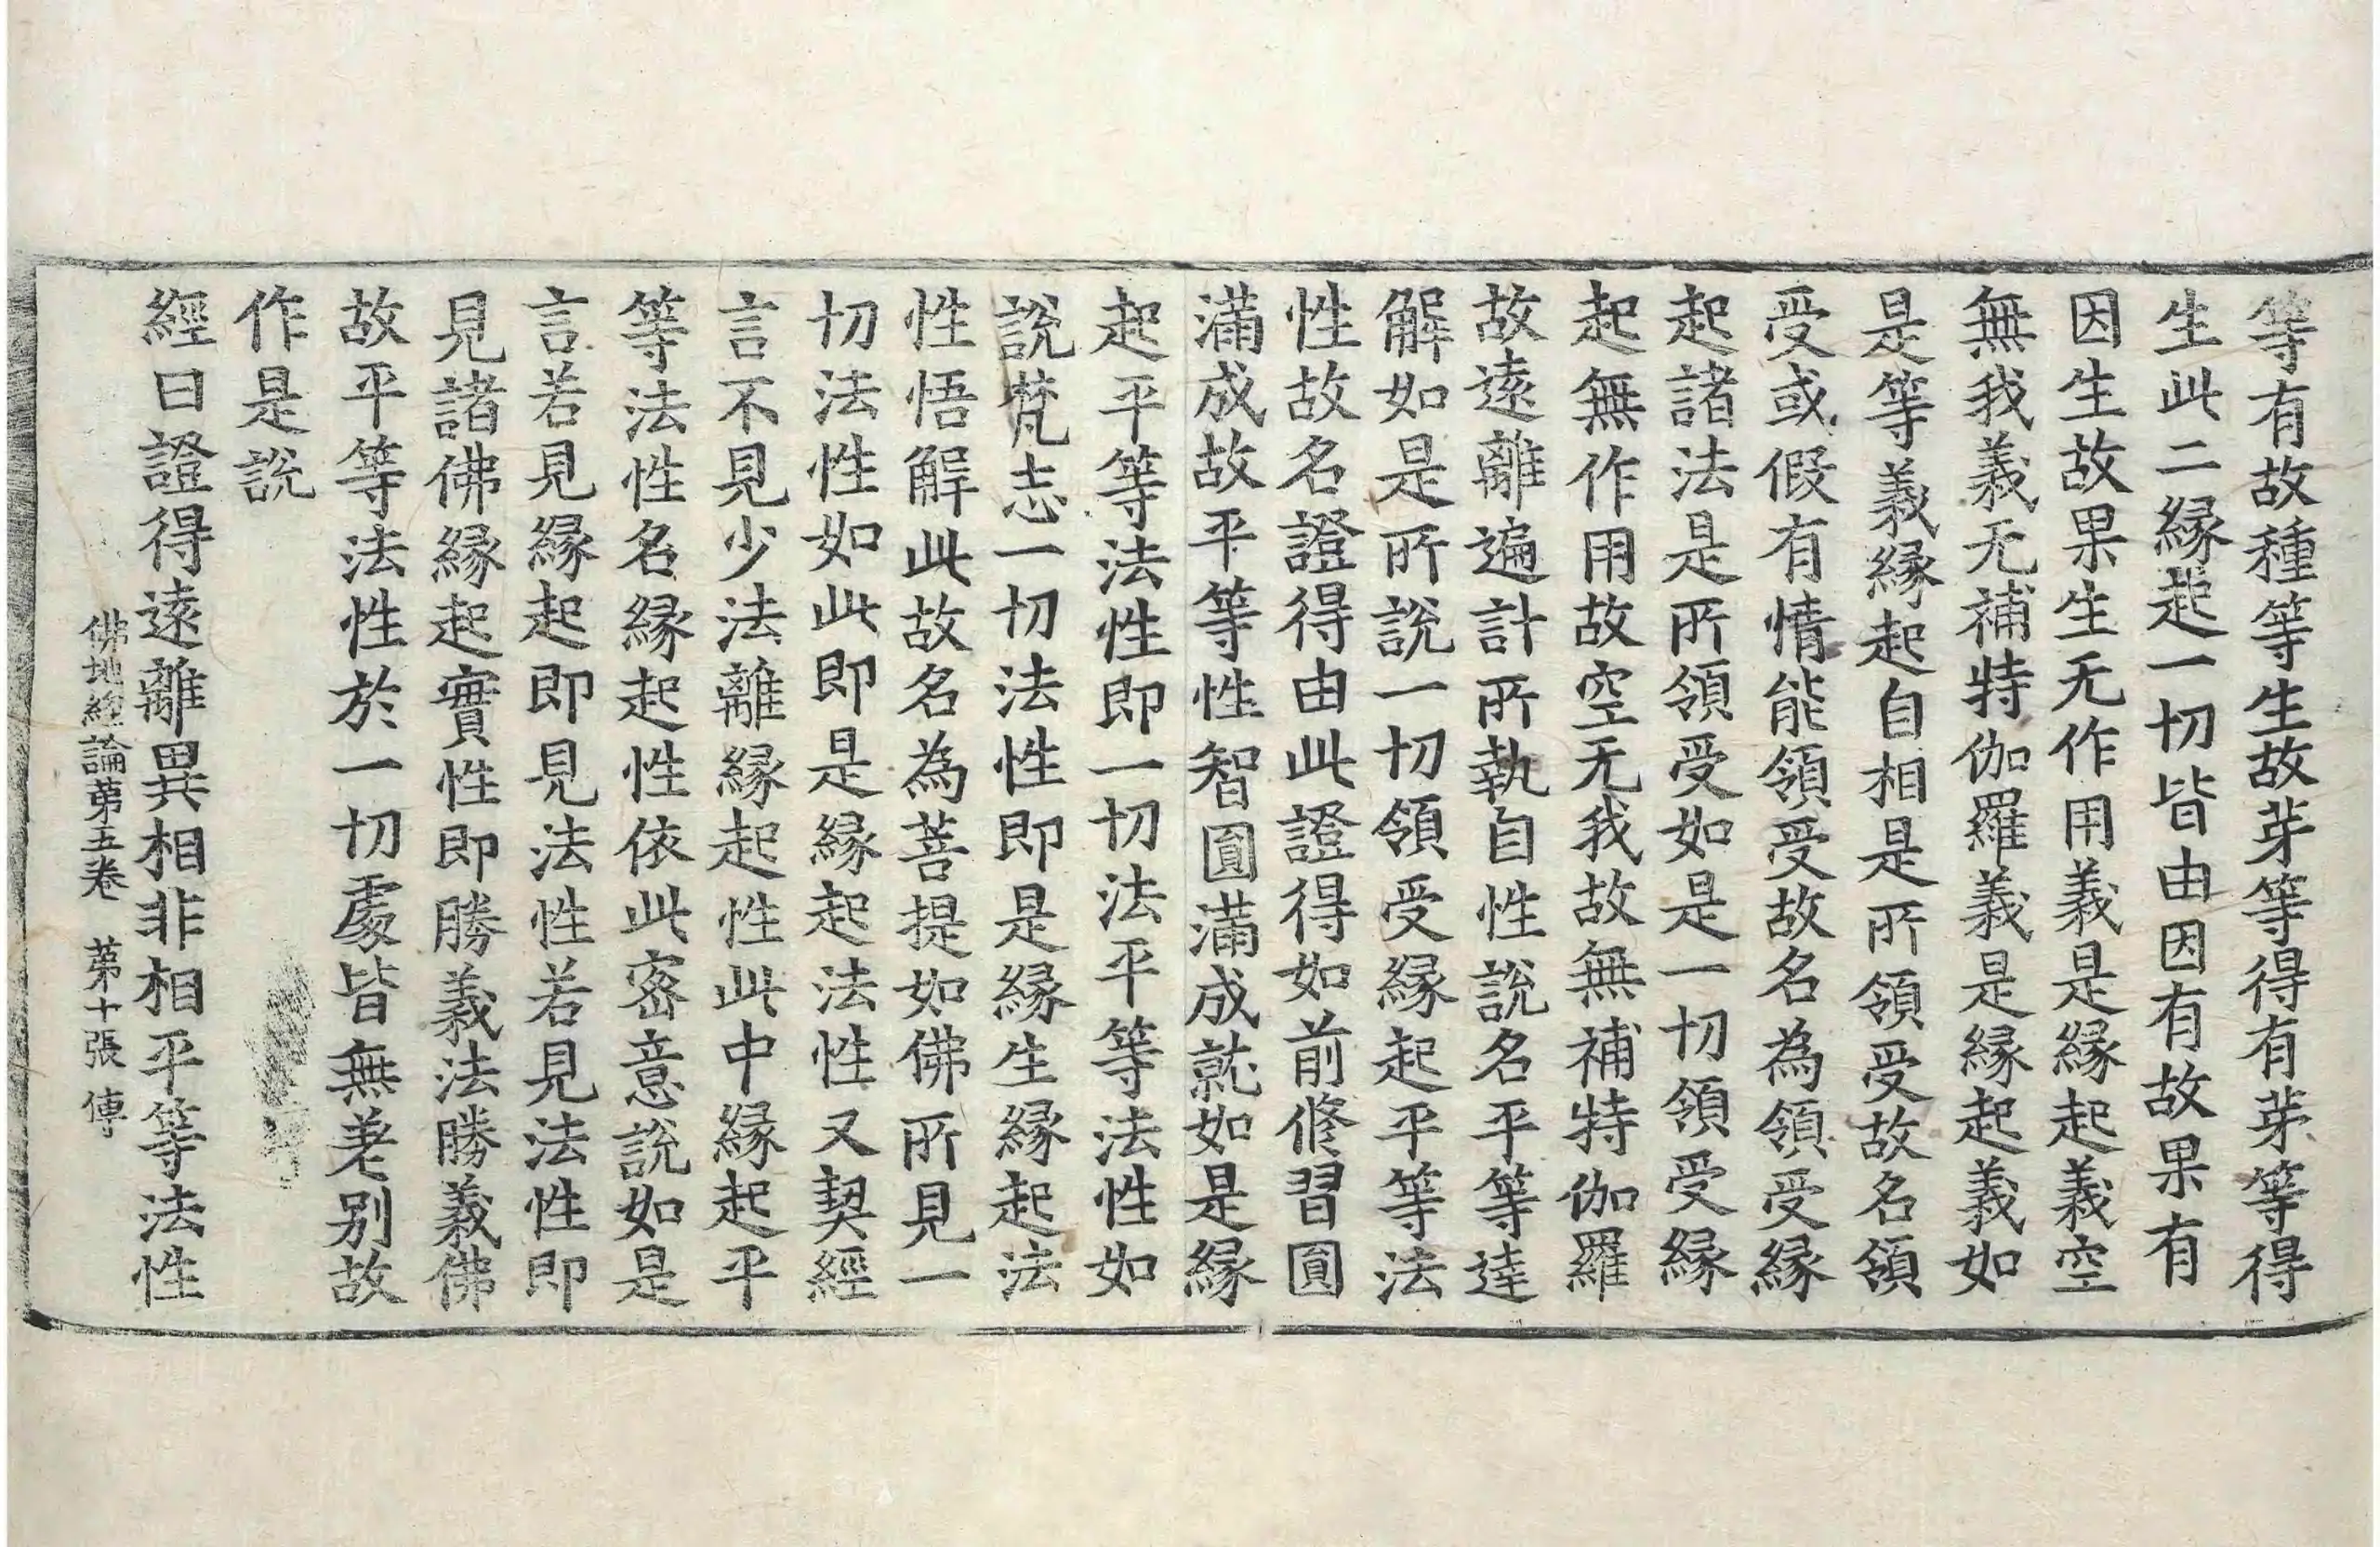 等有故種等生故芽等得有芽等得
生此二緣起一切皆由因有故果有
因生故果生无作用義是緣起義空
無我義无補特伽羅義是緣起義如
是等義緣起自相是所領受故名領
受或假有情能領受故名為領受緣
起諸法是所領受如是一切領受緣
起無作用故空无我故無補特伽羅
故遠離遍計所執自性說名平等達
解如是所說一切領受緣起平等法
性故名證得由此證得如前修習圓
滿成故平等性智圓滿成就如是緣
起平等法性即一切法平等法性如
說梵志一切法性即是緣生緣起法
性悟解此故名為菩提如佛所見一
切法性如此即是緣起法性又契經
言不見少法離緣起性此中緣起平
等法性名緣起性依此密意說如是
言若見緣起即見法性若見法性即
見諸佛緣起實性即勝義法勝義佛
故平等法性於一切處皆無差别故
作是說
經曰證得遠離異相非相平等法性
佛地經論第五卷　第十張　傅